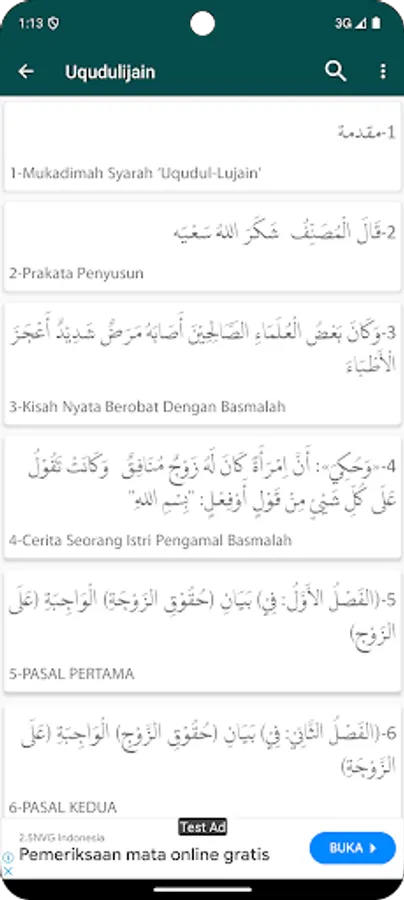 1:13 3G
Uqudulijain
1-مقدمة
1-Mukadimah Syarah 'Uqudul-Lujain'
2-قَالَ الْمُصَنِّفُ شَكَرَ اللهُ سَعْيَه
2-Prakata Penyusun
3-وَكَانَ بَعْضُ الْعُلَمَاءِ الصَّالِحِيْنَ أَصَابَهُ مَرَضٌ شَدِيْدٌ أَعْجَزَ
الْأَطِبَاءَ
3-Kisah Nyata Berobat Dengan Basmalah
4-«وَحُكِيَ»: أَنَّ اِمْرَأَةً كَانَ لَهُ زَوْجٌ مُنَافِقٌ وَكَانَتْ تَقُوْلُ
عَلَى كُلِّ شَيْئٍ مِنْ قَوْلٍ أَوفِعْلٍ: "بِسْمِ اللهِ"
4-Cerita Seorang Istri Pengamal Basmalah
5-(الفَصْلُ الأَوَّلُ: فِي) بَيَانِ (حُقُوْقِ الزَّوْجَةِ) الْوَاجِبَةِ (عَلَى
الزَّوْجِ)
5-PASAL PERTAMA
6-(الفَصْلُ الثَّانِيْ: فِي) بَيَانِ (حُقُوْقِ الزَّوْجِ) الْوَاجِبَةِ (عَلَى
الزَّوْجَةِ)
6-PASAL KEDUA
Test Ad
2.5NVG Indonesia
Pemeriksaan mata online gratis
BUKA